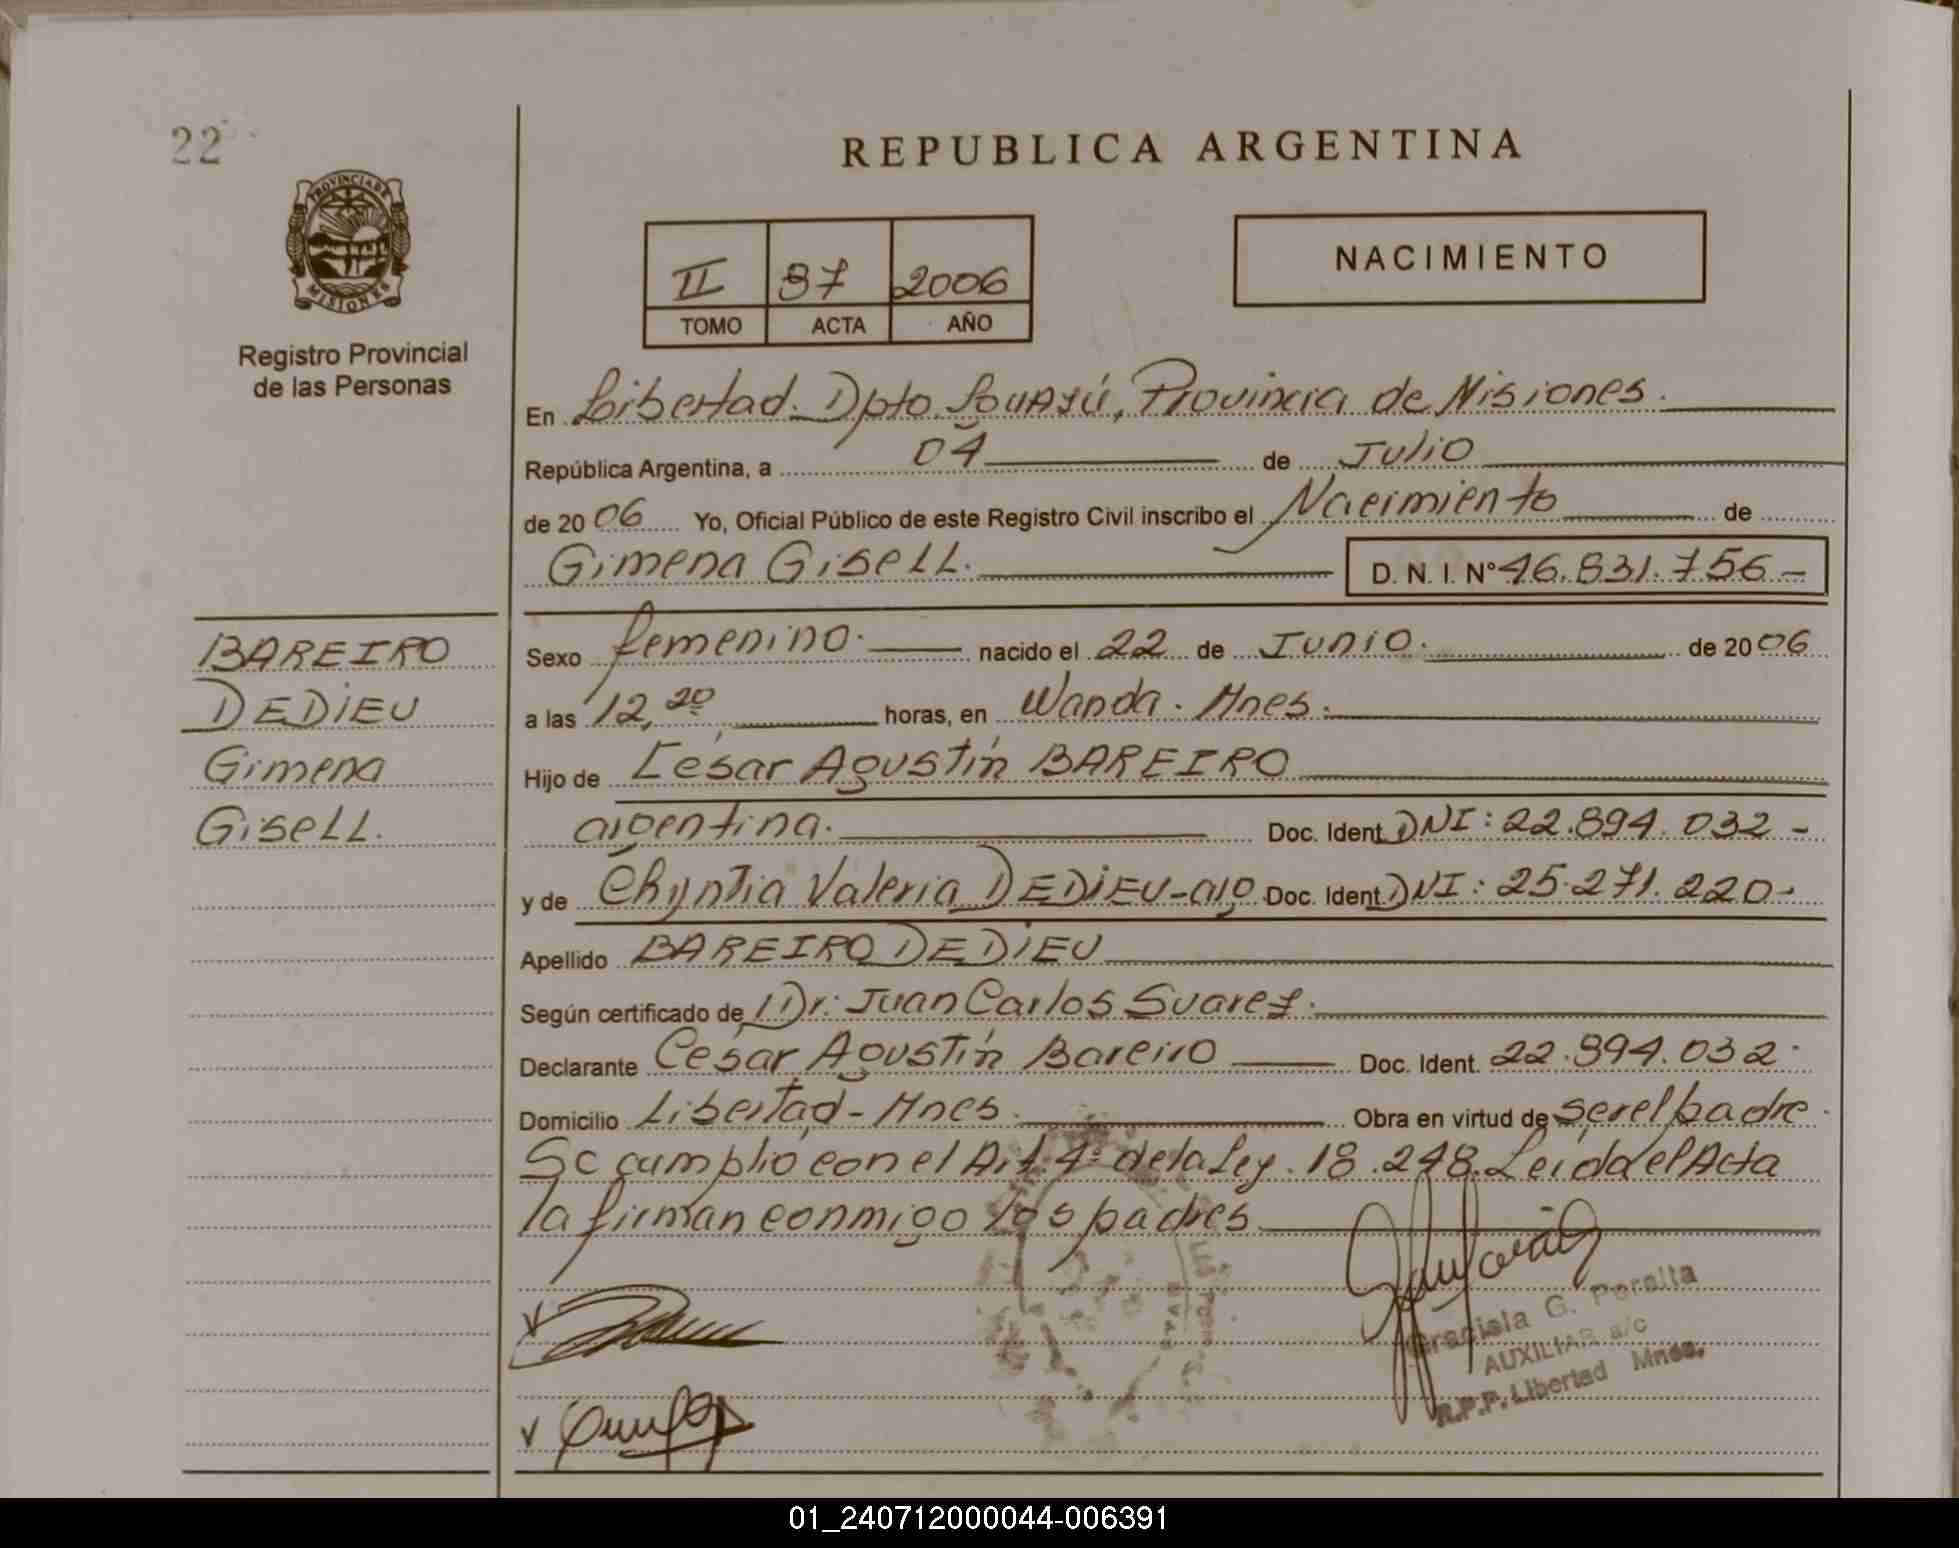 22
REPUBLICA ARGENTINA
PROVINCIA DE
MISIONES
Registro Provincial
de las Personas
II 37 2006
TOMO ACTA AÑO
NACIMIENTO
En Libertad. Dpto. Iguazú, Provincia de Misiones.
República Argentina, a 04 de Julio
de 2006 Yo, Oficial Público de este Registro Civil inscribo el Nacimiento de
Gimena Gisell. D. N. I. N° 46.831.756-
BAREIRO
DEDiEU
Gimena
Gisell.
Sexo femenino. nacido el 22 de Junio. de 2006
a las 12,20 horas, en Wanda. Mnes.
Hijo de César Agustín BAREIRO
argentina. Doc. Ident. DNI: 22.894.032-
y de Chyntia Valeria DEDiEU-arg. Doc. Ident. DNI: 25.271.220-
Apellido BAREIRO DEDiEU
Según certificado de Dr. Juan Carlos Suarez.
Declarante César Agustín Bareiro Doc. Ident. 22.894.032-
Domicilio Libertad - Mnes. Obra en virtud de ser el padre.
Se cumplió con el Art. 4° de la Ley. 18.248. Leida el Acta
la firman conmigo los padres
Graciela G. Peralta
AUXILIAR a/c
R.P.P. Libertad Mnes.
01_240712000044-006391